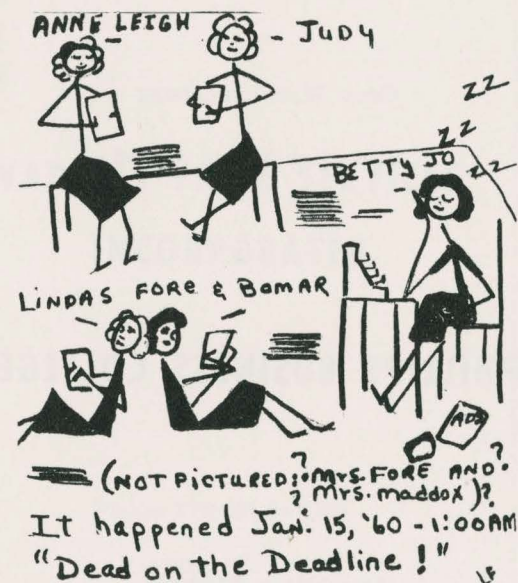 ANNE LEIGH
- JUDY
ZZ
ZZ
ZZ
BETTY JO
LINDAS FORE & BOMAR
ADS
(NOT PICTURED: ? Mrs. FORE AND ?
? Mrs. maddox)?
It happened Jan. 15, '60 - 1:00AM
"Dead on the Deadline!"
LF